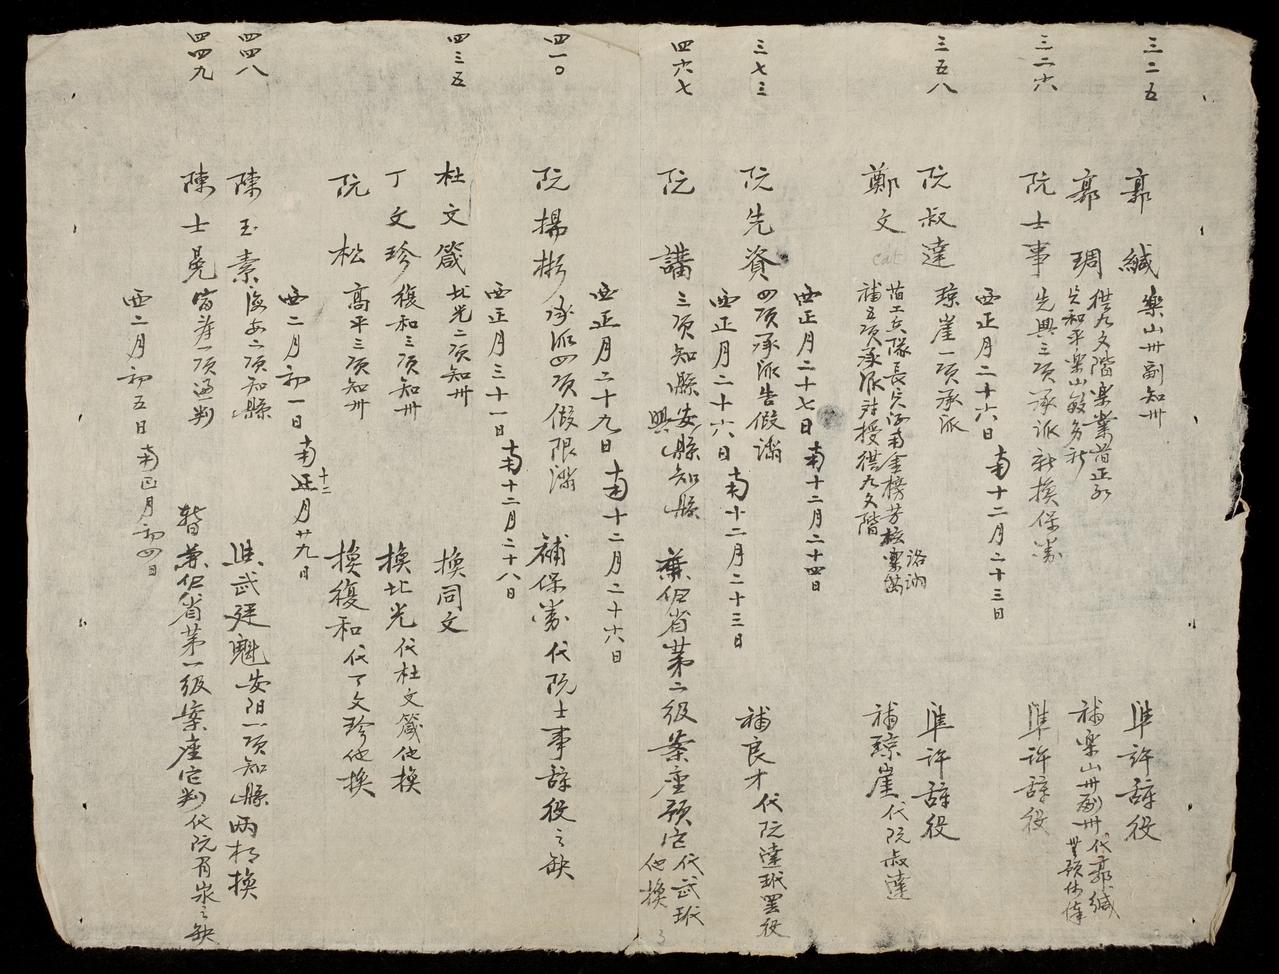 三二五
郭緘 樂山卅副知卅 準許辞役
郭琱 供九文階楽業
補楽山卅副卅代郭緘
三二六
阮士事 先興三項承派 換保 準許辞役
西正月二十六日 南十二月二十三日
三五八
阮叔達 琼崖一項承派 準許辞役
鄭文 cat
補五項承派 授供九文階 補琼崖代阮叔達
西正月二十七日 南十二月二十四日
三七三
阮先資 四項承派告假滿 補良才代阮達玳罢役
西正月二十六日 南十二月二十三日
四六七
阮講 三項知縣安興縣知縣 兼伹省苐二級案座預它代武玳他換
西正月二十九日 南十二月二十六日
四一〇
阮揚彬 承派四項假限滿 補保勝代阮士事辞役之缺
西正月三十一日 南十二月二十八日
四三五
杜文箴 北光二項知卅 換同文
丁文珍 復和三項知卅 換北光代杜文箴他換
阮松 高平三項知卅 換復和代丁文珍他換
西二月初一日 南正月廿九日
十二
四四八
陳玉素 二項知縣 準武廷魁安阳一項知縣両相換
四四九
陳士晃 一項通判 暫兼伹省苐一級案座它判代阮之缺
西二月初五日 南正月初四日
3